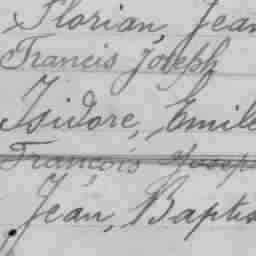 Florian, Jean
Francis Joseph
Isidore, Emile
François Josep
Jean, Baptis